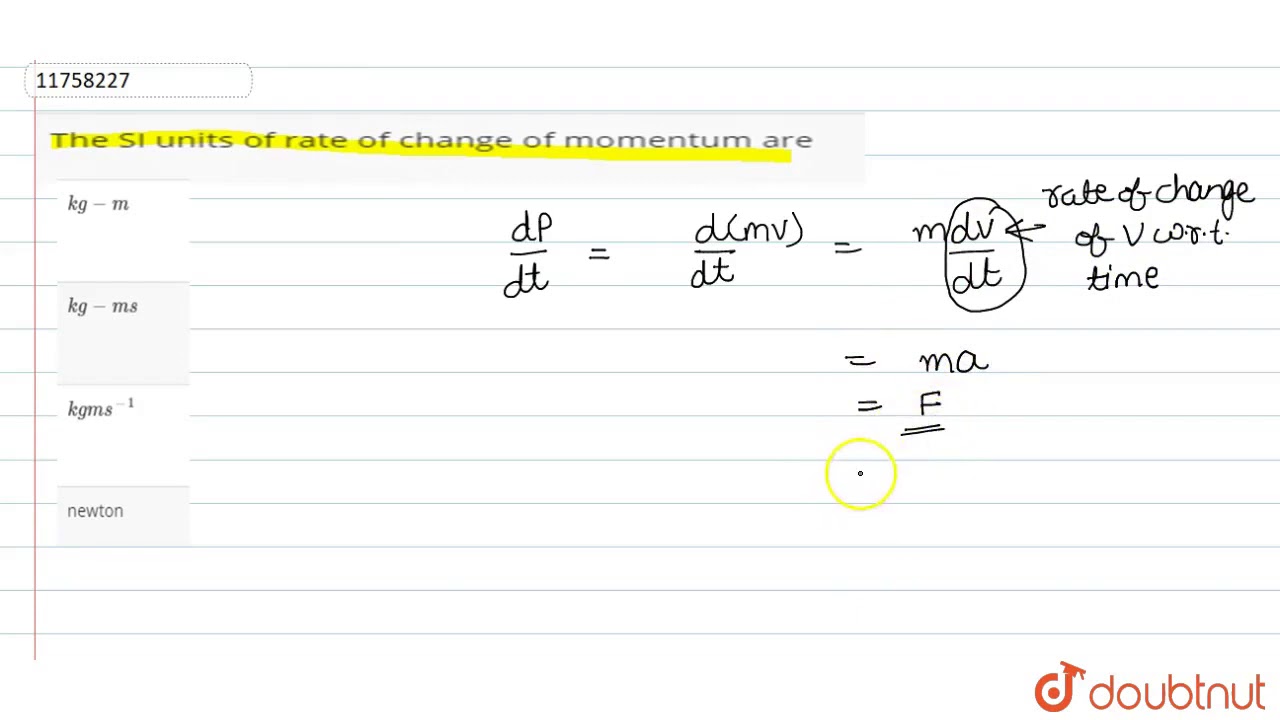 11758227
The SI units of rate of change of momentum are
kg − m
kg − ms
kgms⁻¹
newton
dP/dt = d(mv)/dt = m dv/dt ← rate of change
of V w.r.t.
time
= ma
= F
doubtnut